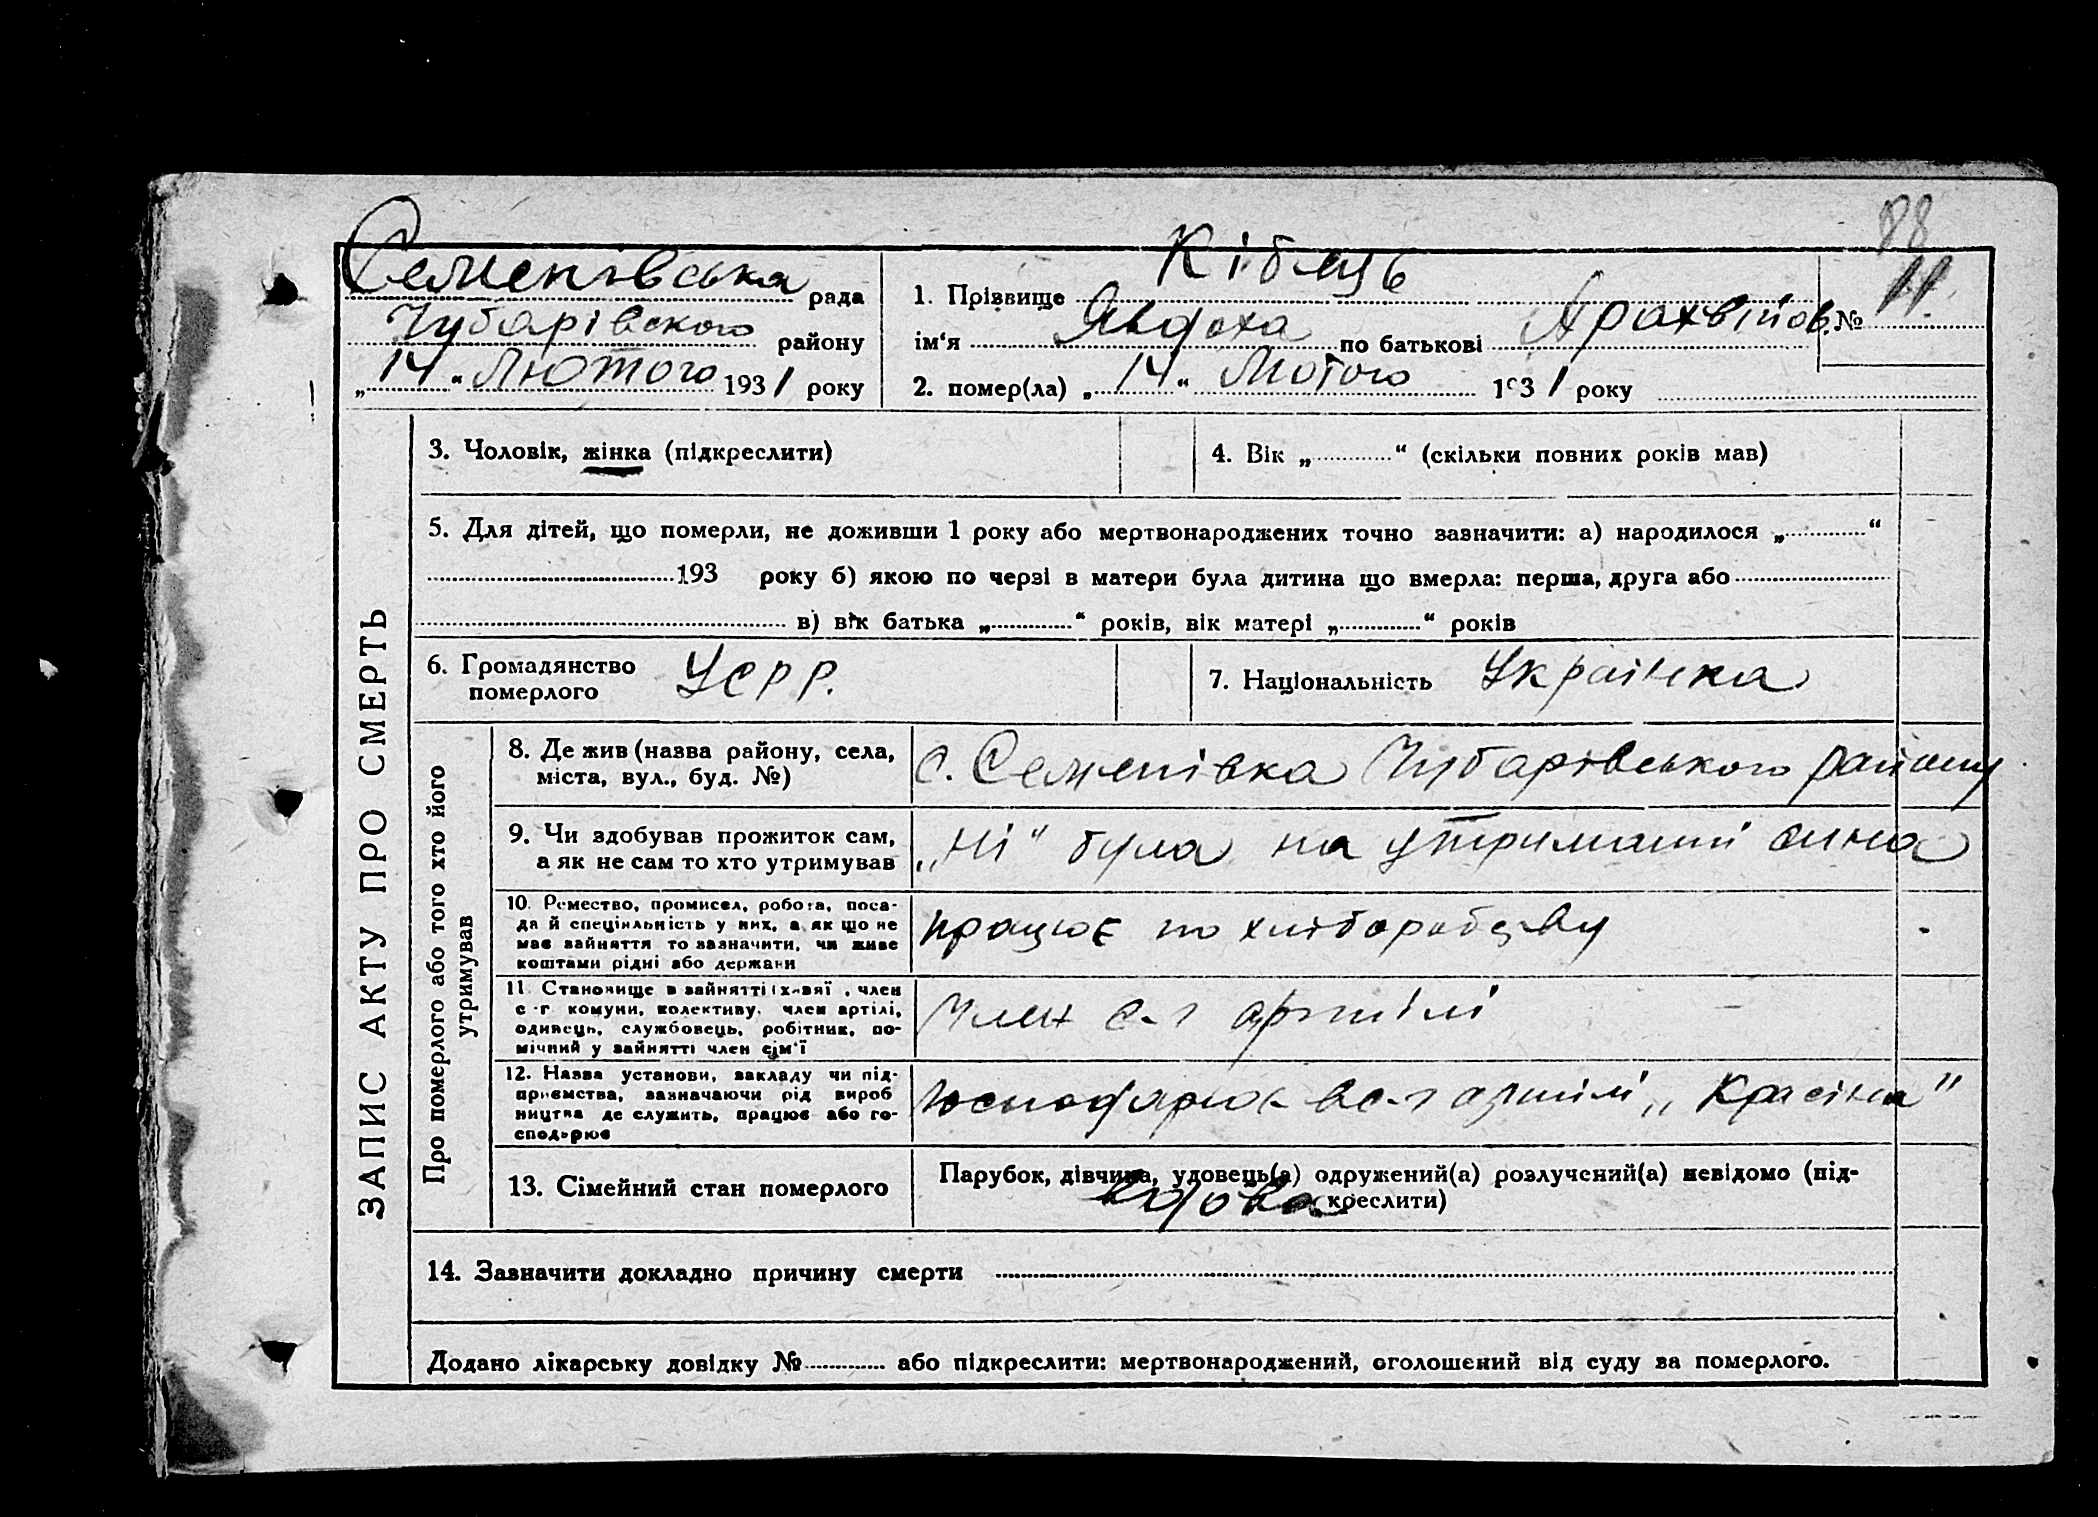 88
Семенівська рада
Чубарівского району
„14“ Лютого 1931 року
1. Прізвище Кібець
ім‘я Явдоха по батькові Арахвійов. № 11.
2. помер(ла) „14“ Лютого 1931 року
ЗАПИС АКТУ ПРО СМЕРТЬ
3. Чоловік, жінка (підкреслити)
4. Вік „ “ (скільки повних років мав)
5. Для дітей, що померли, не доживши 1 року або мертвонароджених точно зазначити: а) народилося „ “
193 року б) якою по черзі в матери була дитина що вмерла: перша, друга або
в) вік батька „ “ років, вік матері „ “ років
6. Громадянство
померлого УСРР.
7. Національність Українка
Про померлого або того хто його
утримував
8. Де жив (назва району, села,
міста, вул., буд. №)
с. Семенівка Чубарівського району
9. Чи здобував прожиток сам,
а як не сам то хто утримував
„Ні“ була на утриманні сина
10. Ремество, промисел, робота, поса-
да й спеціяльність у них, а як що не
має зайняття то зазначити, чи живе
коштами рідні або держави
працює по хліборобству
11. Становище в зайнятті , член
с-г комуни, колективу, член артілі,
одинець, службовець, робітник, по-
мічний у зайнятті член сім‘ї
Член с-г артілі
12. Назва установи, закладу чи під-
приємства, зазначаючи рід вироб
ництва де служить, працює або го-
сподарює
Господарює в с-г артілі „Красіна“
13. Сімейний стан померлого
Парубок, дівчина, удовець(а) одружений(а) розлучений(а) невідомо (під-
креслити)
вдова
14. Зазначити докладно причину смерти
Додано лікарську довідку № або підкреслити: мертвонароджений, оголошений від суду за померлого.